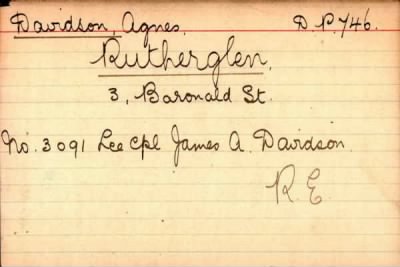 Davidson, Agnes. D.P.746.
Rutherglen,
3, Baronald St.
No. 3091 Lce Cpl James A. Davidson
R.E.